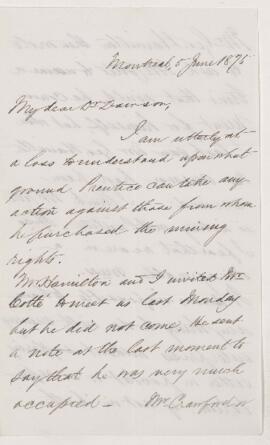 Montreal, 5 June 1875
My dear Dr Dawson,
I am utterly at
a loss to understand upon what
ground Prentice can take any
action against those from whom
he purchased the mining
rights.
Mr Hamilton and I invited Mr
Cotté to meet us last Monday
but he did not come. He sent
a note at the last moment to
say that he was very much
occupied – Mr Crawford